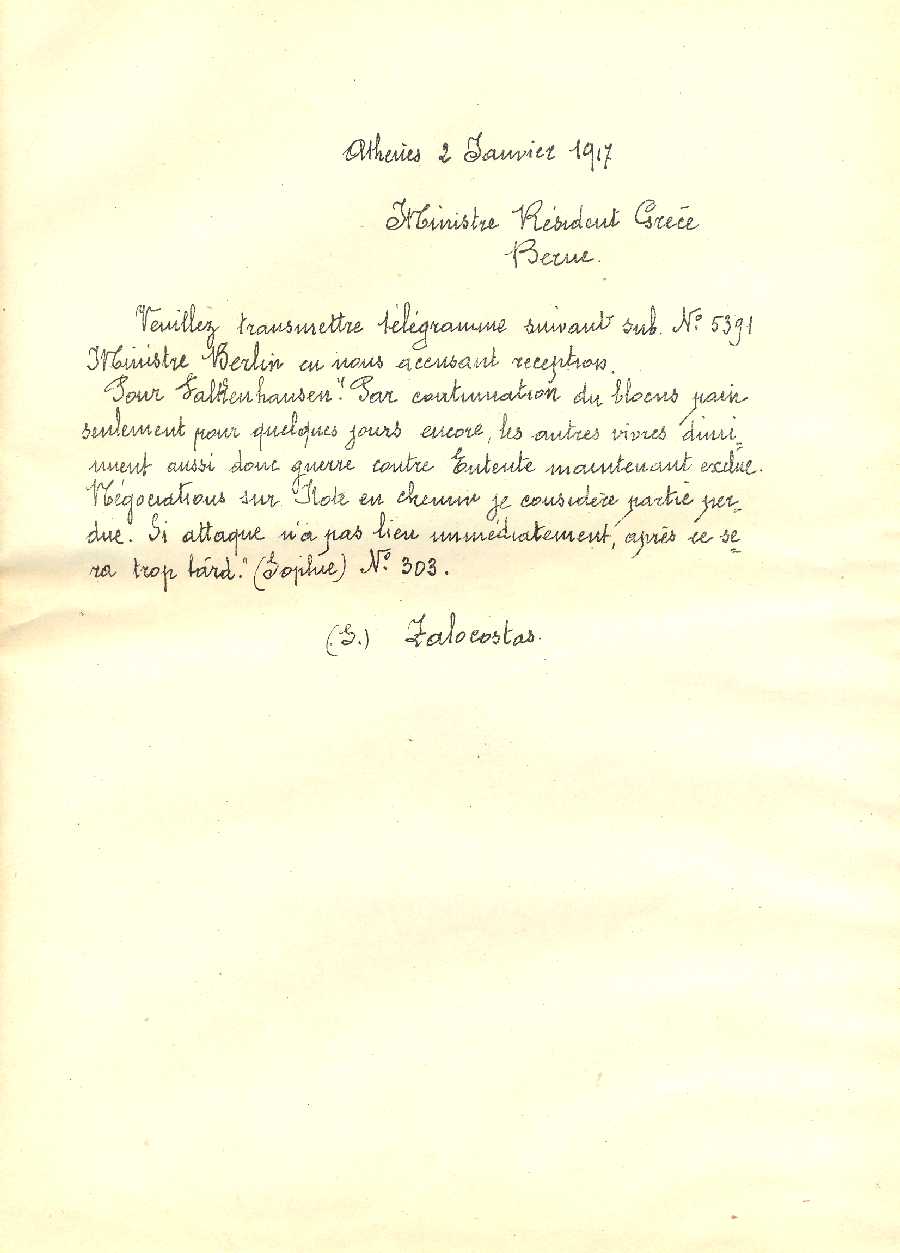 Athènes 2 Janvier 1917
Ministre Résident Grèce
Berne.
Veuillez transmettre télégramme suivant sub. Nº 5391
Ministre Berlin en nous accusant reception.
Pour Falkenhausen". Par continuation du blocus pain
seulement pour quelques jours encore, les autres vivres dimi-
nuent aussi donc guerre contre Entente maintenant exclue.
Négociations sur Note en chemin je considère partie per-
due. Si attaque n'a pas lieu immédiatement, après ce se-
ra trop tàrd." (Sophie) Nº 303.
(S.) Zalocostas.